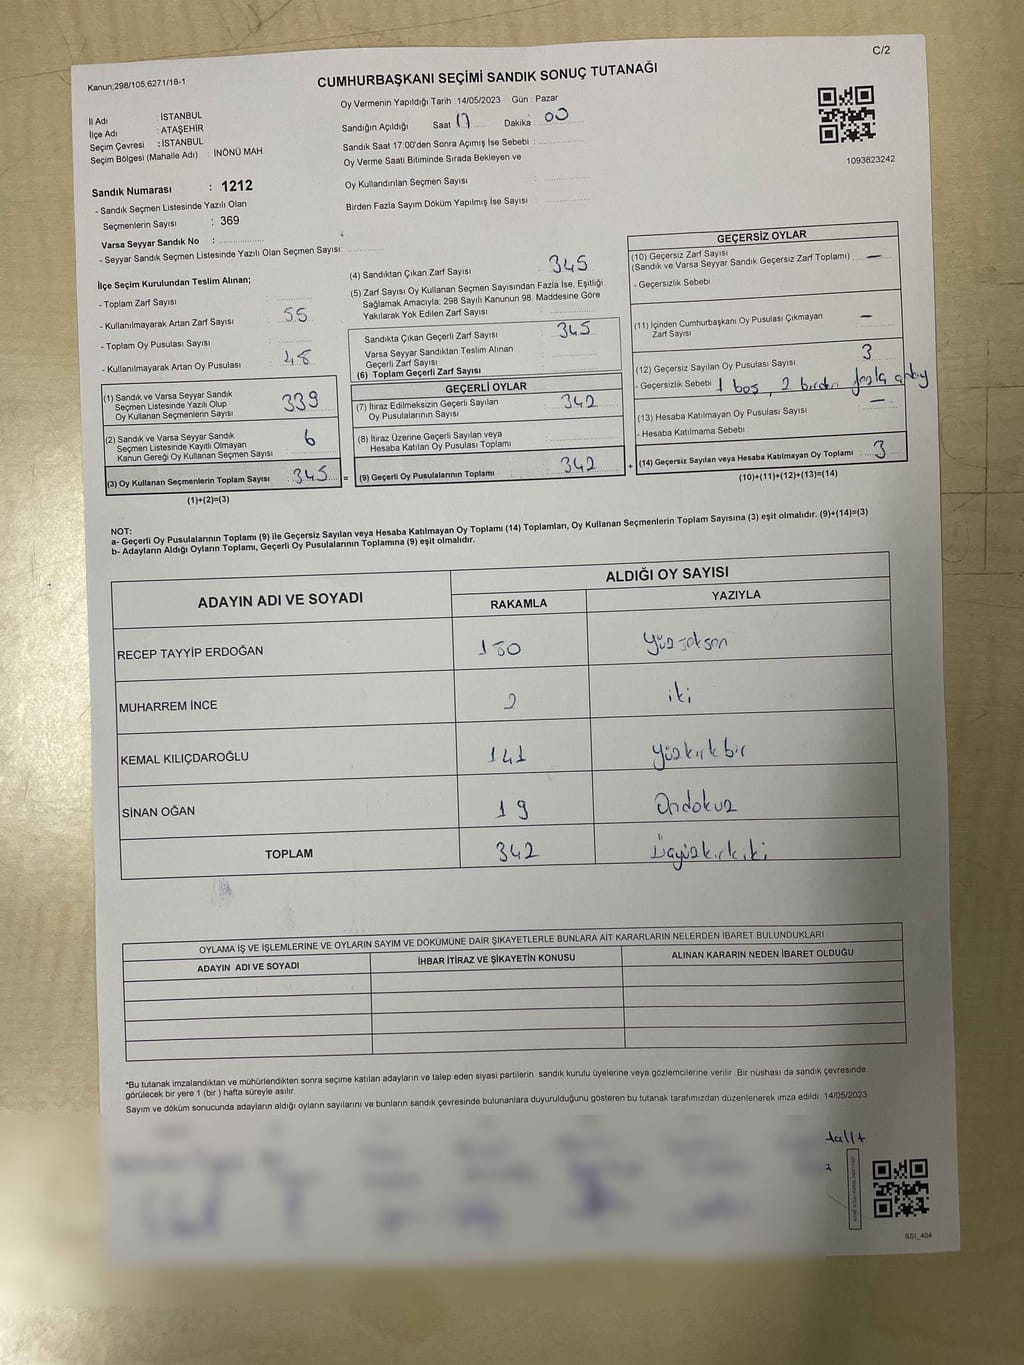 C/2
Kanun;298/105;6271/18-1
CUMHURBAŞKANI SEÇİMİ SANDIK SONUÇ TUTANAĞI
İl Adı : İSTANBUL
İlçe Adı : ATAŞEHİR
Seçim Çevresi : İSTANBUL
Seçim Bölgesi (Mahalle Adı) : İNÖNÜ MAH.
Sandık Numarası : 1212
- Sandık Seçmen Listesinde Yazılı Olan
Seçmenlerin Sayısı : 369
Varsa Seyyar Sandık No :
- Seyyar Sandık Seçmen Listesinde Yazılı Olan Seçmen Sayısı:
Oy Vermenin Yapıldığı Tarih : 14/05/2023 Gün : Pazar
Sandığın Açıldığı Saat 17 Dakika : 00
Sandık Saat 17:00'den Sonra Açımış İse Sebebi :
Oy Verme Saati Bitiminde Sırada Bekleyen ve
Oy Kullandırılan Seçmen Sayısı
Birden Fazla Sayım Döküm Yapılmış İse Sayısı
1093823242
İlçe Seçim Kurulundan Teslim Alınan;
- Toplam Zarf Sayısı
- Kullanılmayarak Artan Zarf Sayısı : 55
- Toplam Oy Pusulası Sayısı
- Kullanılmayarak Artan Oy Pusulası : 48
(1) Sandık ve Varsa Seyyar Sandık
Seçmen Listesinde Yazılı Olup
Oy Kullanan Seçmenlerin Sayısı 339
(2) Sandık ve Varsa Seyyar Sandık
Seçmen Listesinde Kayıtlı Olmayan
Kanun Gereği Oy Kullanan Seçmen Sayısı 6
(3) Oy Kullanan Seçmenlerin Toplam Sayısı : 345 =
(1)+(2)=(3)
(4) Sandıktan Çıkan Zarf Sayısı : 345
(5) Zarf Sayısı Oy Kullanan Seçmen Sayısından Fazla İse, Eşitliği
Sağlamak Amacıyla; 298 Sayılı Kanunun 98. Maddesine Göre
Yakılarak Yok Edilen Zarf Sayısı
Sandıkta Çıkan Geçerli Zarf Sayısı : 345
Varsa Seyyar Sandıktan Teslim Alınan
Geçerli Zarf Sayısı
(6) Toplam Geçerli Zarf Sayısı
GEÇERLİ OYLAR
(7) İtiraz Edilmeksizin Geçerli Sayılan
Oy Pusulalarının Sayısı : 342
(8) İtiraz Üzerine Geçerli Sayılan veya
Hesaba Katılan Oy Pusulası Toplamı
(9) Geçerli Oy Pusulalarının Toplamı : 342 +
GEÇERSİZ OYLAR
(10) Geçersiz Zarf Sayısı
(Sandık ve Varsa Seyyar Sandık Geçersiz Zarf Toplamı) : —
- Geçersizlik Sebebi
(11) İçinden Cumhurbaşkanı Oy Pusulası Çıkmayan
Zarf Sayısı —
(12) Geçersiz Sayılan Oy Pusulası Sayısı 3
- Geçersizlik Sebebi 1 boş, 2 birden fazla
(13) Hesaba Katılmayan Oy Pusulası Sayısı —
- Hesaba Katılmama Sebebi
(14) Geçersiz Sayılan veya Hesaba Katılmayan Oy Toplamı : 3
(10)+(11)+(12)+(13)=(14)
NOT:
a- Geçerli Oy Pusulalarının Toplamı (9) ile Geçersiz Sayılan veya Hesaba Katılmayan Oy Toplamı (14) Toplamları, Oy Kullanan Seçmenlerin Toplam Sayısına (3) eşit olmalıdır. (9)+(14)=(3)
b- Adayların Aldığı Oyların Toplamı, Geçerli Oy Pusulalarının Toplamına (9) eşit olmalıdır.
ADAYIN ADI VE SOYADI ALDIĞI OY SAYISI
RAKAMLA YAZIYLA
RECEP TAYYİP ERDOĞAN 180 Yüzseksen
MUHARREM İNCE 2 iki
KEMAL KILIÇDAROĞLU 141 yüzkırkbir
SİNAN OĞAN 19 Ondokuz
TOPLAM 342 Üçyüzkırkiki
OYLAMA İŞ VE İŞLEMLERİNE VE OYLARIN SAYIM VE DÖKÜMÜNE DAİR ŞİKAYETLERLE BUNLARA AİT KARARLARIN NELERDEN İBARET BULUNDUKLARI
ADAYIN ADI VE SOYADI İHBAR İTİRAZ VE ŞİKAYETİN KONUSU ALINAN KARARIN NEDEN İBARET OLDUĞU
*Bu tutanak imzalandıktan ve mühürlendikten sonra seçime katılan adayların ve talep eden siyasi partilerin sandık kurulu üyelerine veya gözlemcilerine verilir. Bir nüshası da sandık çevresinde
görülecek bir yere 1 (bir ) hafta süreyle asılır.
Sayım ve döküm sonucunda adayların aldığı oyların sayılarını ve bunların sandık çevresinde bulunanlara duyurulduğunu gösteren bu tutanak tarafımızdan düzenlenerek imza edildi. 14/05/2023
GSI_404